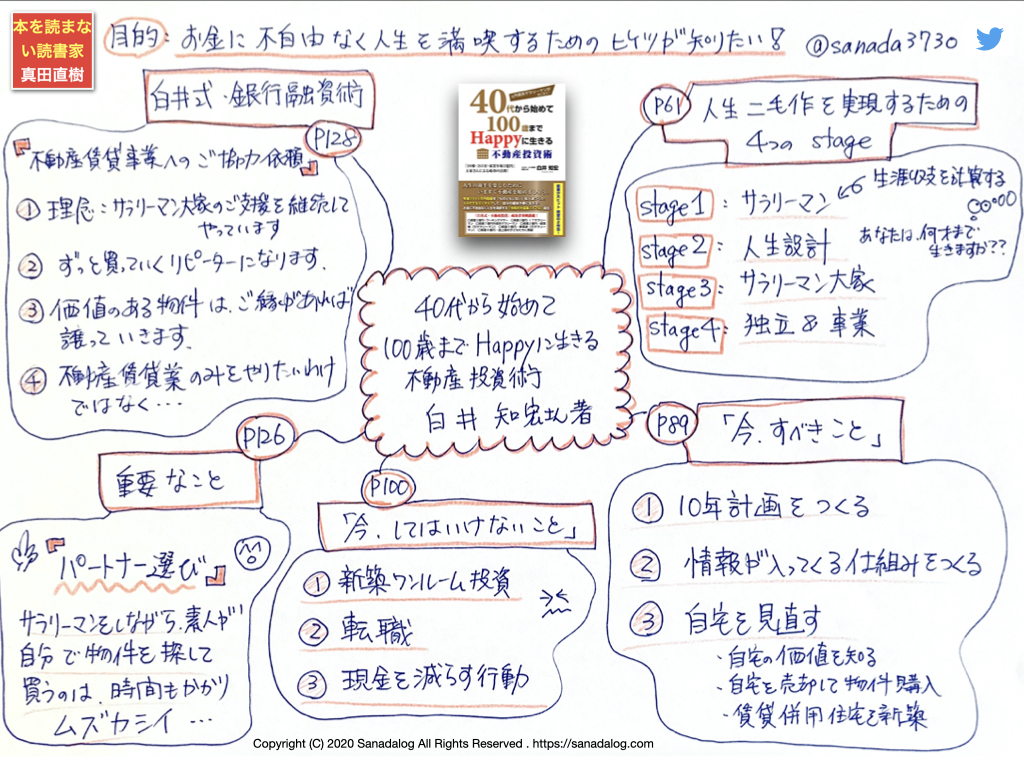 本を読まな
い読書家
真田直樹
目的：お金に不自由なく人生を満喫するためのヒケツが知りたい！
@sanada3730
白井式・銀行融資術
P128
『不動産賃貸事業へのご協力依頼』
① 理念：サラリーマン大家のご支援を継続して
やっています
② ずっと買っていくリピーターになります．
③ 価値のある物件は、ご縁があれば
譲っていきます．
④ 不動産賃貸業のみをやりたいわけ
ではなく…
40代から始めて
100歳まで
Happyに生きる
不動産投資術
P61
人生二毛作を実現するための
4つの stage
stage1：サラリーマン
生涯収支を計算する
あなたは、何才まで
生きますか??
stage2：人生設計
stage3：サラリーマン大家
stage4：独立 & 事業
40代から始めて
100歳までHappyに生きる
不動産投資術
白井 知宏さん著
P126
重要なこと
『パートナー選び』
サラリーマンをしながら、素人が
自分で物件を探して
買うのは、時間もかかり
ムズカシイ…
P100
「今、してはいけないこと」
① 新築ワンルーム投資
② 転職
③ 現金を減らす行動
P89
「今、すべきこと」
① 10年計画をつくる
② 情報が入ってくる仕組みをつくる
③ 自宅を見直す
・自宅の価値を知る
・自宅を売却して物件購入
・賃貸併用住宅を新築
Copyright (C) 2020 Sanadalog All Rights Reserved . https://sanadalog.com